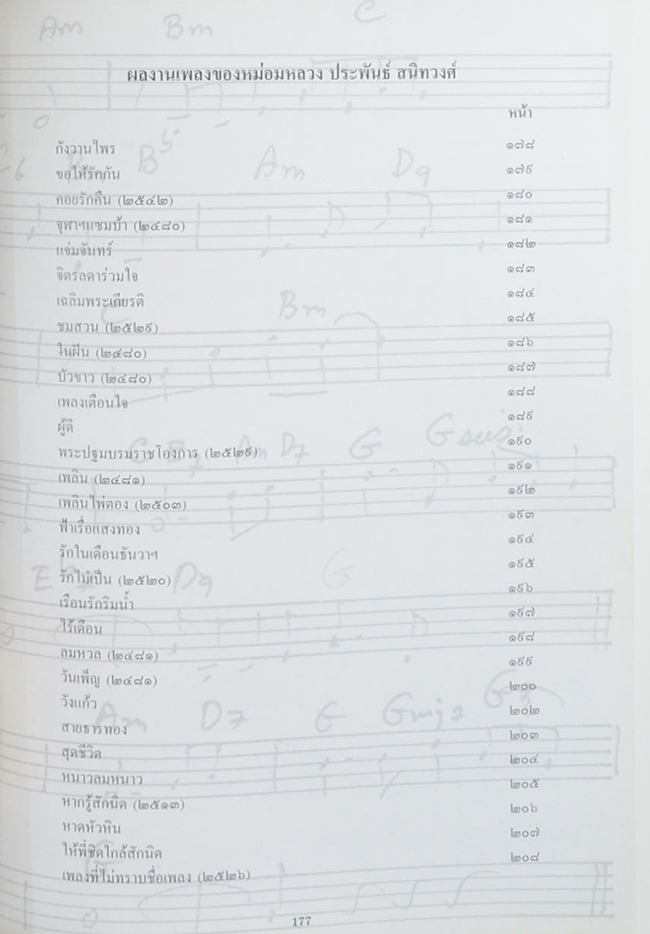 Am Bm C
ผลงานเพลงของหม่อมหลวง ประพันธ์ สนิทวงศ์
หน้า
กังวานไพร ๑๗๘
ขอให้รักกัน ๑๗๙
คอยรักคืน (๒๕๔๒) ๑๘๐
จุฬาฯแซมบ้า (๒๔๘๐) ๑๘๑
แจ่มจันทร์ ๑๘๒
จิตรลดาร่วมใจ ๑๘๓
เฉลิมพระเกียรติ ๑๘๔
ชมสวน (๒๕๒๙) ๑๘๕
ในฝัน (๒๔๘๐) ๑๘๖
บัวขาว (๒๔๘๐) ๑๘๗
เพลงเตือนใจ ๑๘๘
ผู้ดี ๑๘๙
พระปฐมบรมราชโองการ (๒๕๒๙) ๑๙๐
เพลิน (๒๔๘๑) ๑๙๑
เพลินไพ่ตอง (๒๕๐๓) ๑๙๒
ฟ้าเรื่อแสงทอง ๑๙๓
รักในเดือนธันวาฯ ๑๙๔
รักไม่เป็น (๒๕๒๐) ๑๙๕
เรือนรักริมน้ำ ๑๙๖
ไร้เดือน ๑๙๗
ลมหวล (๒๔๘๑) ๑๙๘
วันเพ็ญ (๒๔๘๑) ๑๙๙
วังแก้ว ๒๐๐
สายธารทอง ๒๐๒
สุดชีวิต ๒๐๓
หนาวลมหนาว ๒๐๔
หากรู้สักนิด (๒๕๑๓) ๒๐๕
หาดหัวหิน ๒๐๖
ให้พี่ชิดใกล้สักนิด ๒๐๗
เพลงที่ไม่ทราบชื่อเพลง (๒๕๒๖) ๒๐๘
177